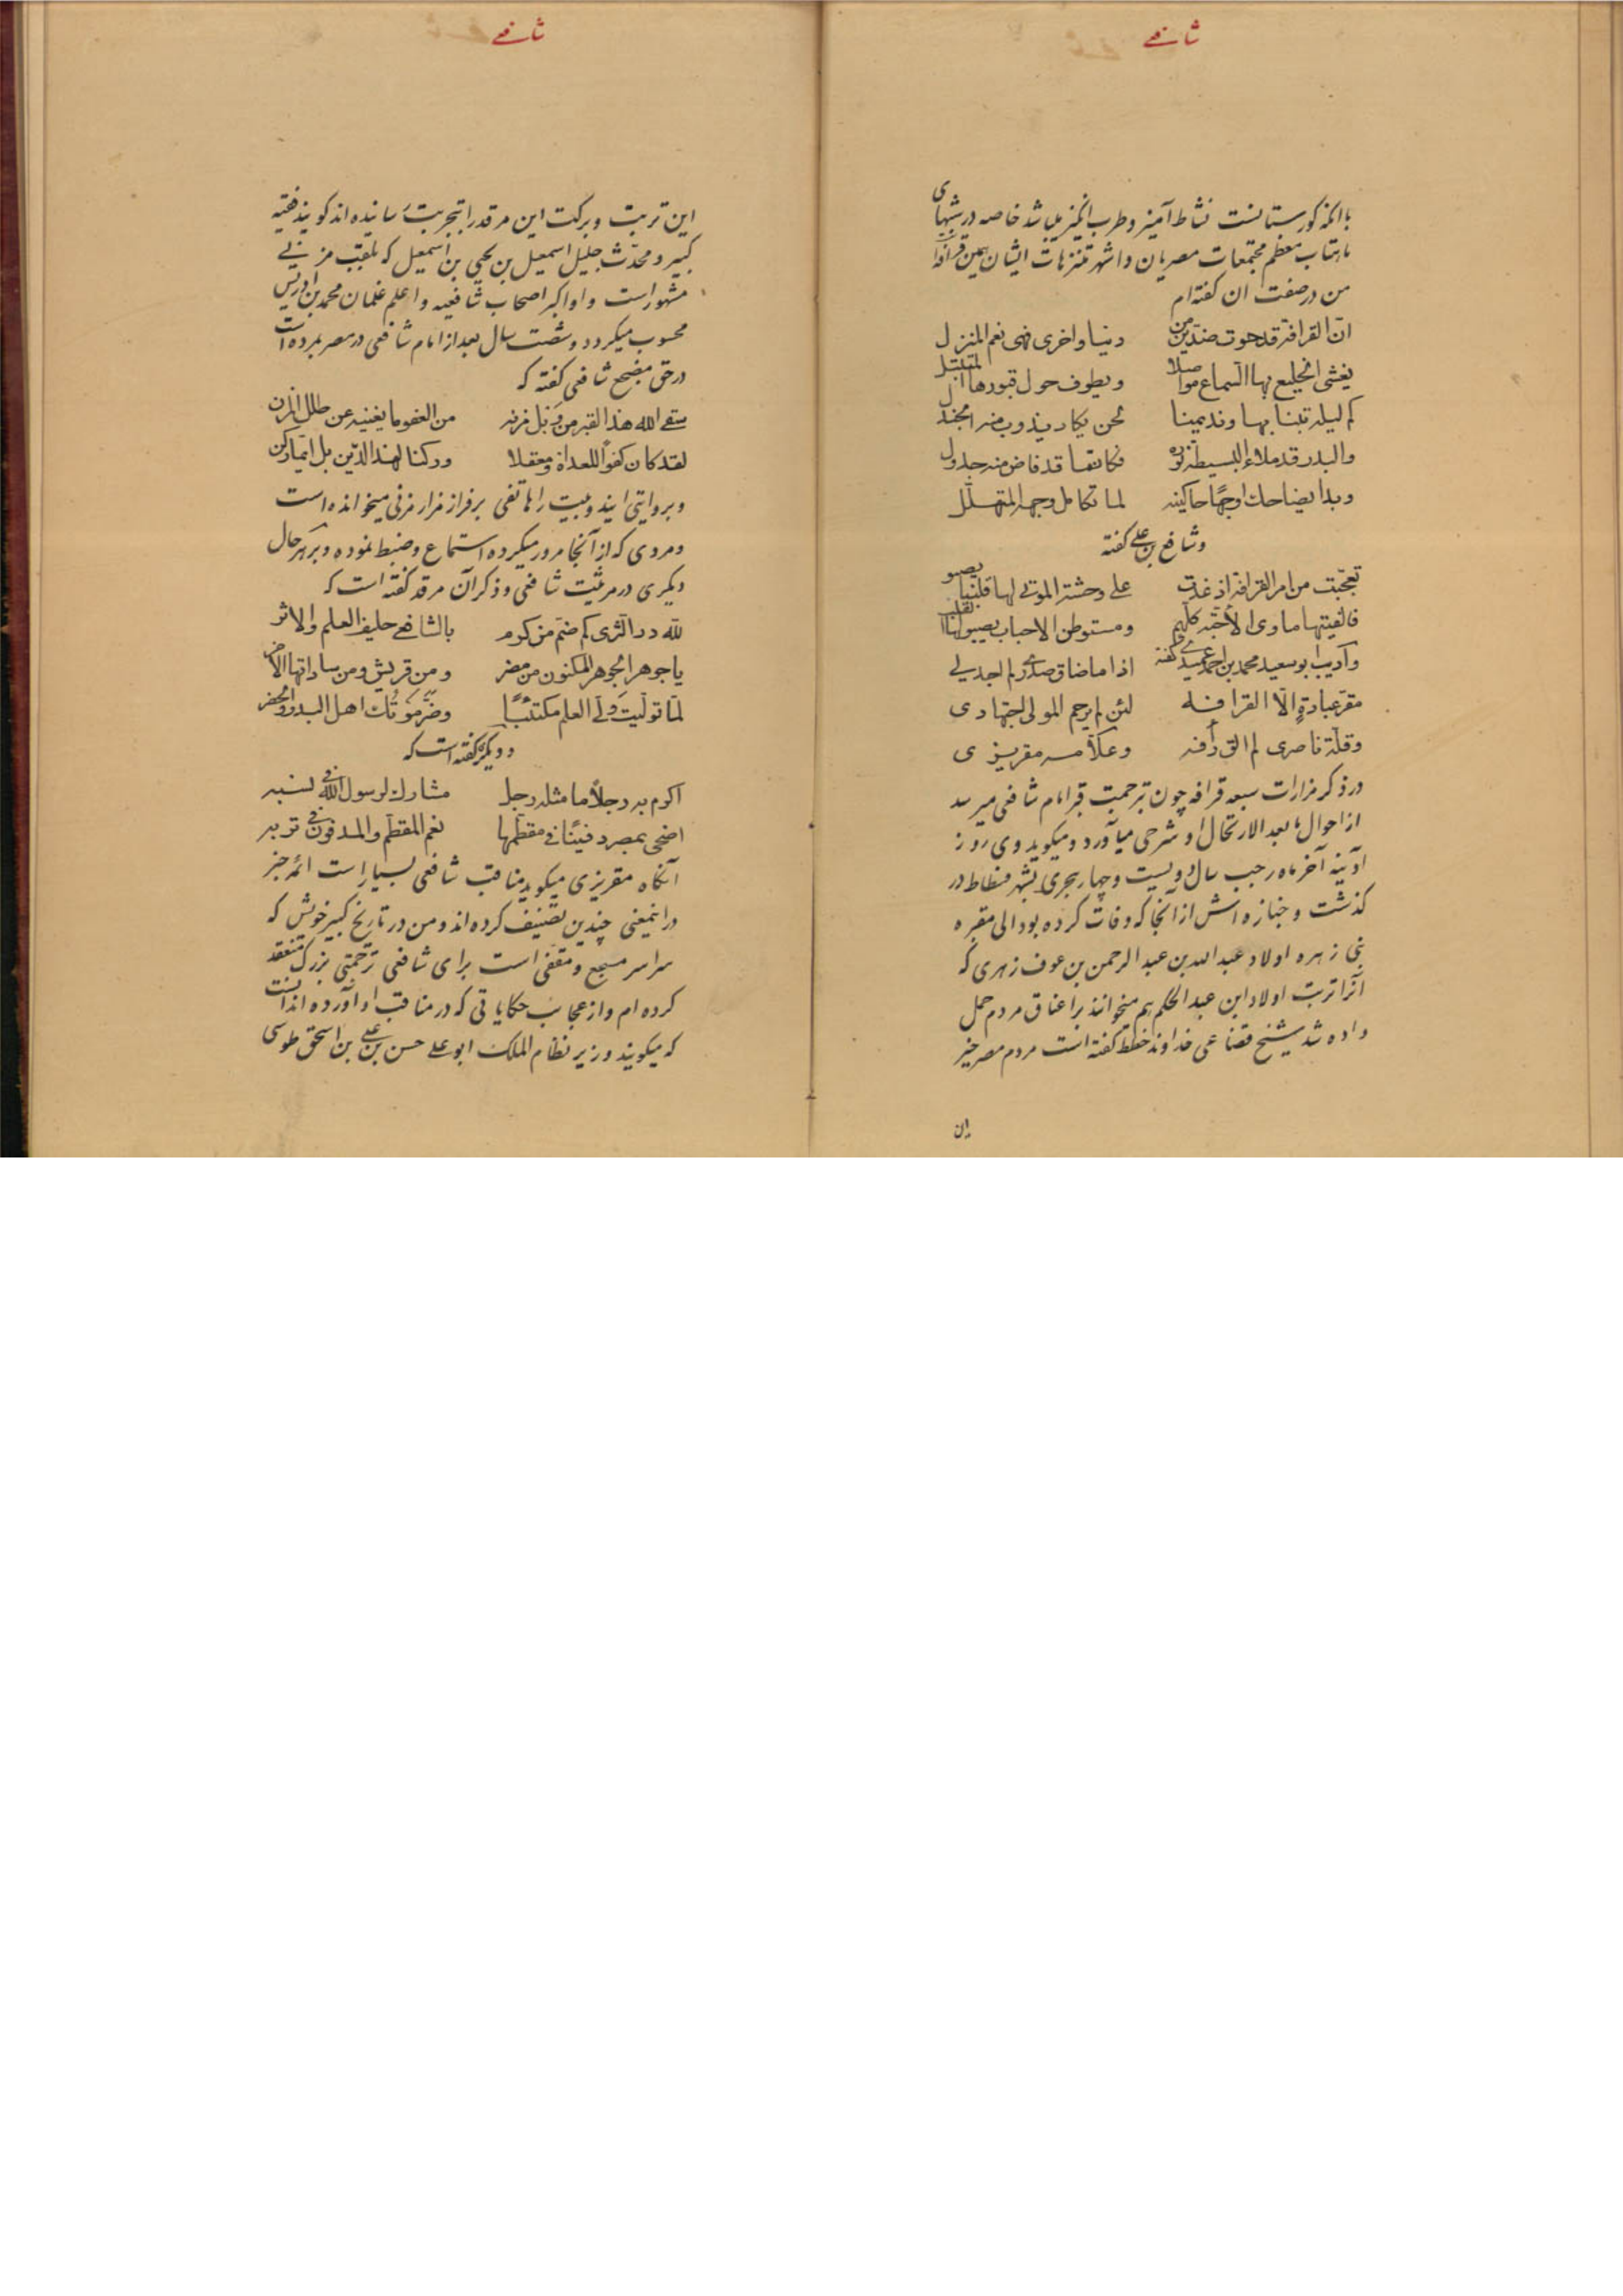 شافعی
با آنکه گورستانست نشاط آمیز و طرب انگیز میباشد خاصه در شبهای
ماهتاب معظم مجتمعات مصریان و اشهر متنزهات ایشان همین قرافه
من در صفت ان گفته‌ام
انّ القرافة قد حوت ضدّین من دنیا واخری فهی نعم المنزل
یغشی الخلیع بها السماع مواصلا ویطوف حول قبورها المتبتل
کم لیلة بتنا بها وندیمنا لحن یکاد یذوب منه الجندل
والبدر قد ملاء البسیطة نوره فکانما قد فاض منه جدول
وبدا یضاحك اوجهًا حاکینه لما تکامل وجهه المتهلّل
و شافع بن علی گفته
تعجّبت من امر القرافة اذ غدت علی وحشة الموتی لها قلبنا یصبو
فالفیتها ماوی الأحبّه کلّهم ومستوطن الاحباب یصبو له القلب
و ادیب ابو سعید محمد بن احمد عمیدی گفته
اذا ما ضاق صدری لم اجد لی مقرّ عبادةٍ الّا القرافه
لئن لم یرحم المولی اجتهادی وقلّة ناصری لم الق رأفه
و علّامه مقریزی
در ذکر مزارات سبعه قرافه چون بترجمت قبر امام شافعی میرسد
از احوال ما بعد الارتحال او شرحی میآورد و میگوید وی روز
آدینه آخر ماه رجب سال دویست و چهار هجری بشهر فسطاط در
گذشت و جنازه اش از انجا که وفات کرده بود الی مقبره
بنی زهره اولاد عبد الله بن عبد الرحمن بن عوف زهری که
آنرا تربت اولاد ابن عبد الحکم هم میخوانند بر اعناق مردم حمل
داده شد شیخ قضاعی خداوند خطط گفته است مردم مصر خیر
ان
شافعی
این تربت و برکت این مرقد را بتجربت رسانیده اند گویند فقیه
کبیر و محدّث جلیل اسمعیل بن یحیی بن اسمعیل که بلقب مزنی
مشهور است و او اکبر اصحاب شافعیه و اعلم غلمان محمد بن ادریس
محسوب میگردد و شصت سال بعد از امام شافعی در مصر بمرده است
در حق مضجع شافعی گفته که
سقی الله هذا القبر من وبل مزنه من العفو ما یغنیه عن طلل المزن
لقد کان کفوًا للعداة ومعقلا ورکنا لهذا الدّین بل ایّما رکن
و بروایتی ایندو بیت را هاتفی بر فراز مزار مزنی میخوانده است
و مردی که از آنجا مرور میکرده استماع و ضبط نموده و بر هر حال
دیگری در مرثیت شافعی و ذکر آن مرقد گفته است که
للّه درّ الثری کم ضمّ من کرم بالشافعی حلیف العلم والاثر
یا جوهر الجوهر المکنون من مضر ومن قریش ومن ساداتها الاخر
لمّا تولّیت ولّی العلم مکتئبًا وضرّ موتك اهل البدو والحضر
و دیگری گفته است که
اکرم به رجلاً ما مثله رجل مشارك لرسول الله فی نسبه
اضحی بمصر دفینًا فی مقطّمها نعم المقطّم والمدفون فی تربه
آنگاه مقریزی میگوید مناقب شافعی بسیار است ائمه خبر
در اینمعنی چندین تصنیف کرده اند و من در تاریخ کبیر خویش که
سراسر مسجع و مقفی است برای شافعی ترجمتی بزرگ منعقد
کرده ام و از عجایب حکایاتی که در مناقب او آورده اند اینست
که میگویند وزیر نظام الملك ابو علی حسن بن علی بن اسحق طوسی